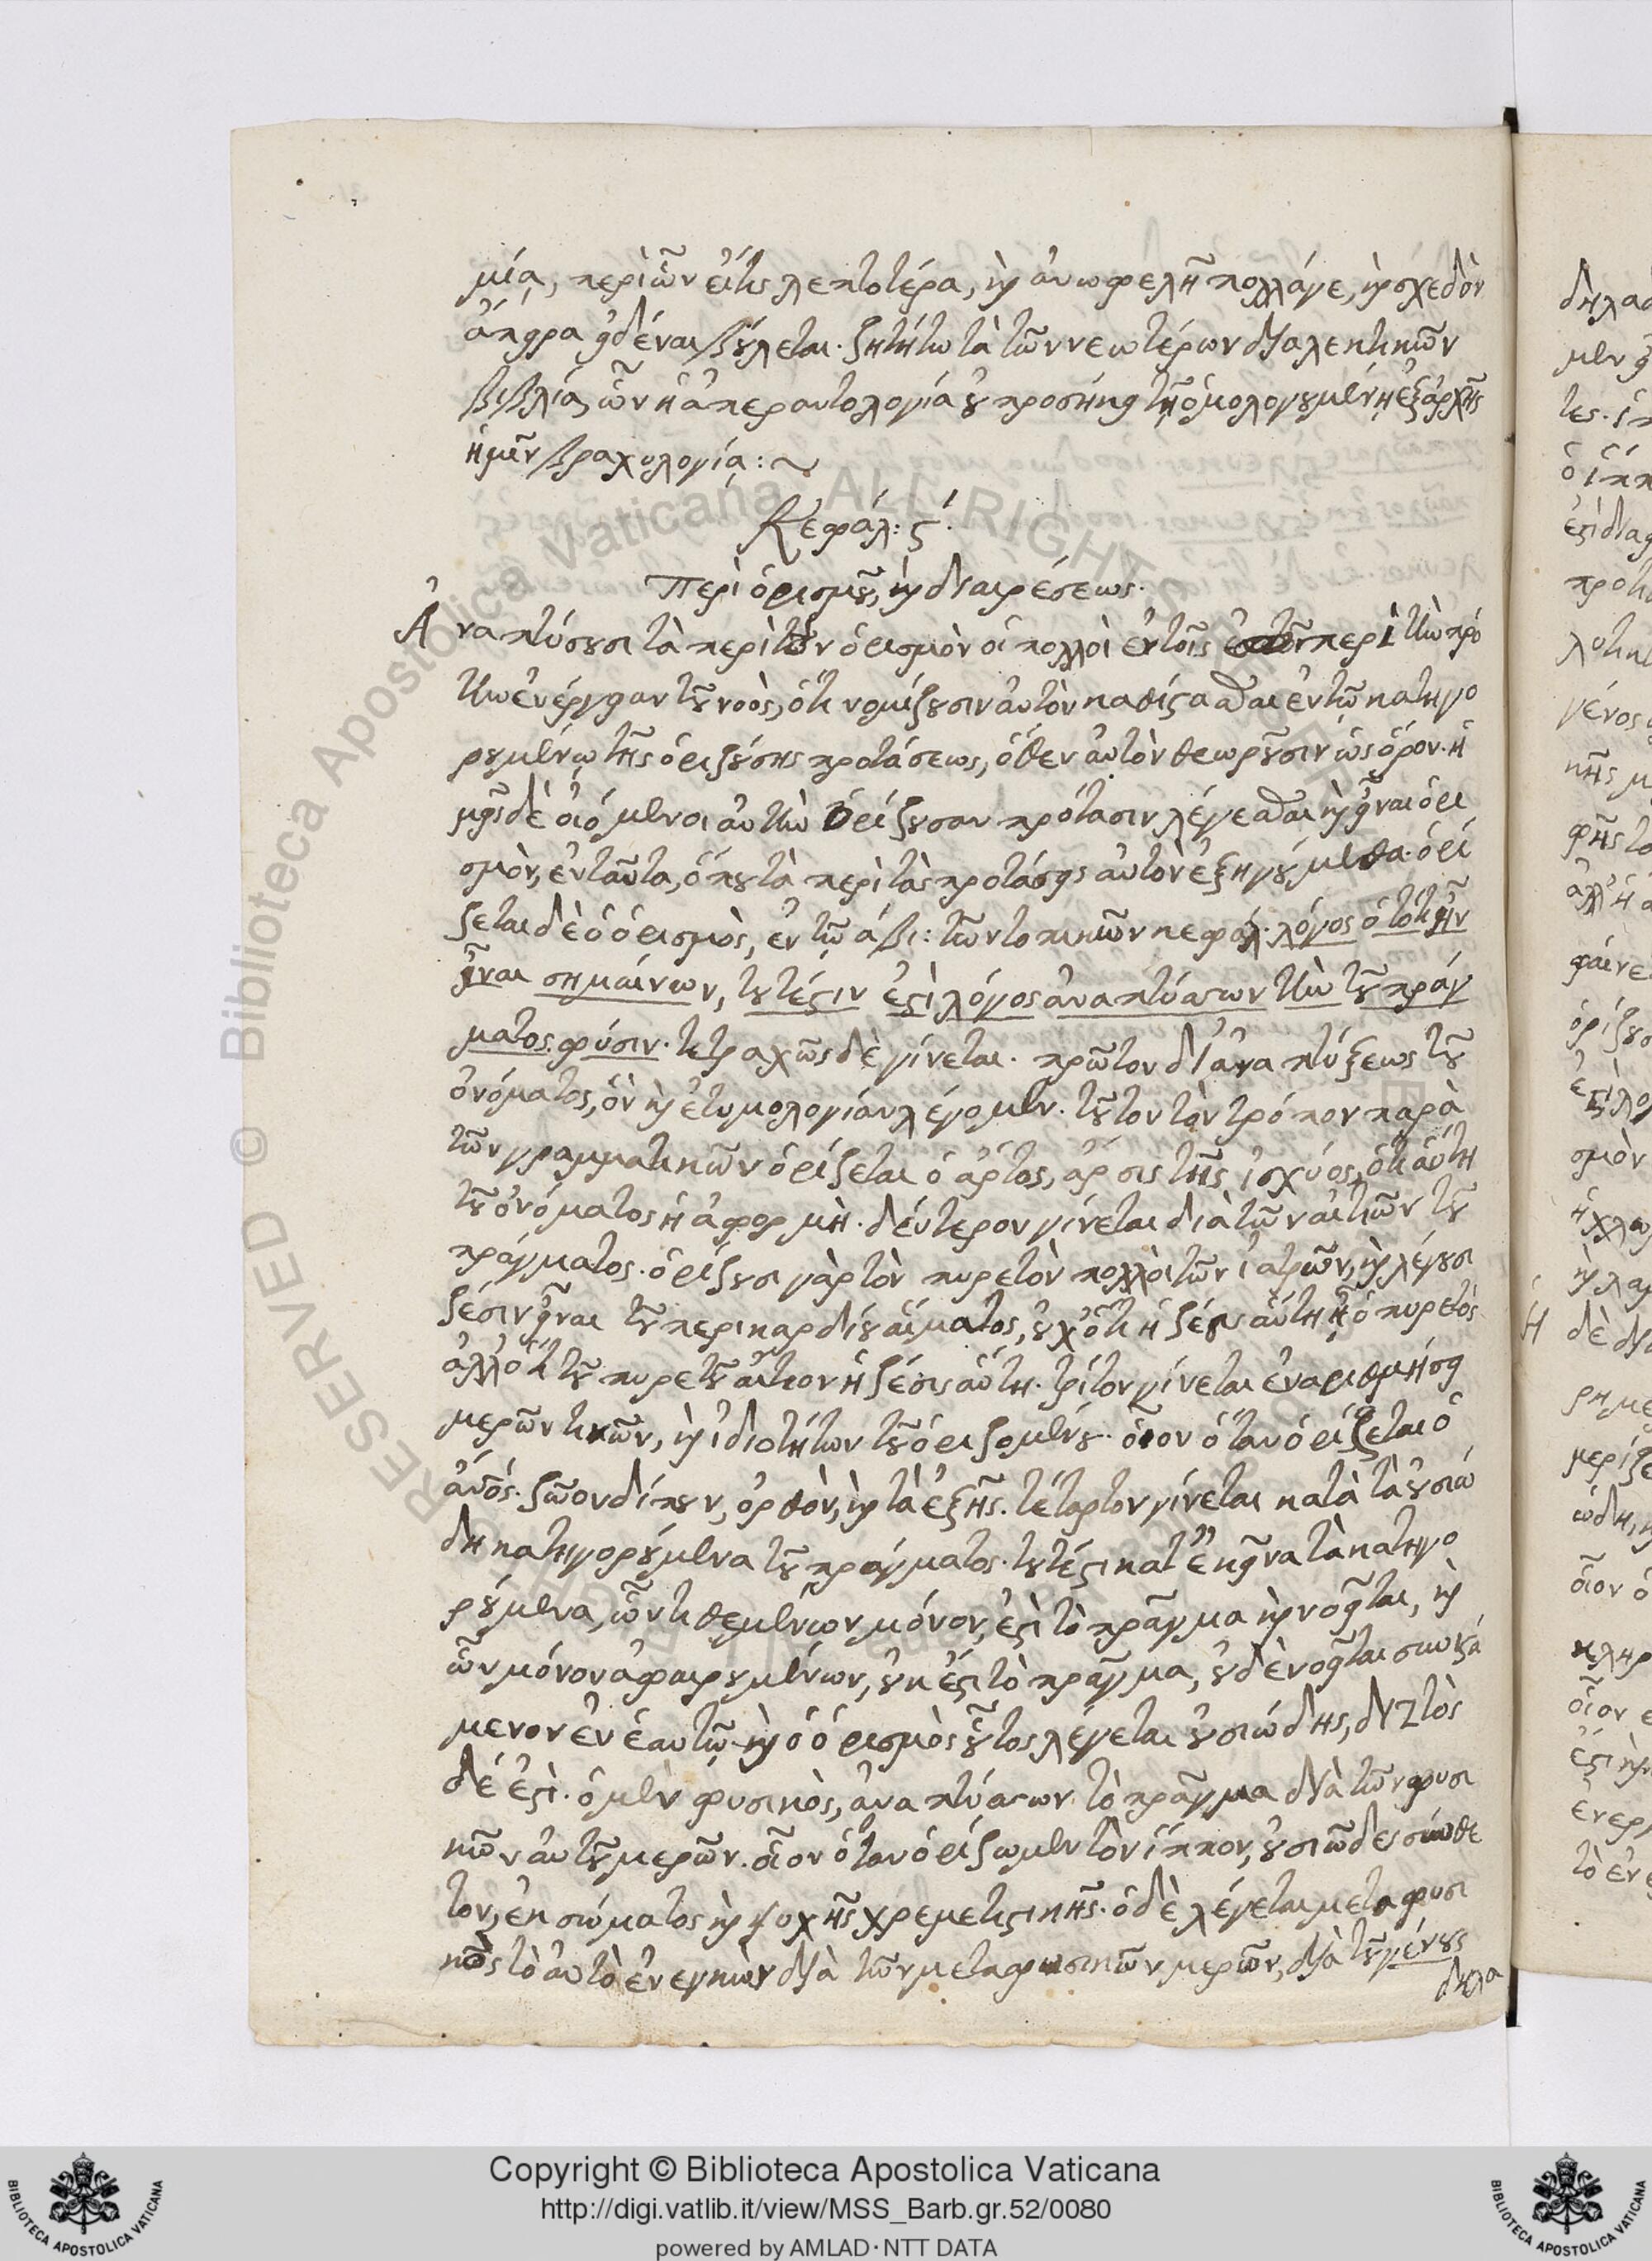 μία, περὶ ὧν εἴτις λεπτοτέρα, καὶ ἀνωφελῆ πολλάγε, καὶ σχεδὸν
ἄπειρα εἰδέναι βούλεται. ζητήτω τὰ τῶν νεωτέρων διαλεκτικῶν
βιβλία, ὧν ἡ ἀπεραντολογία οὐ προσήκει τῇ ὁμολογουμένῃ ἐξ ἀρχῆς
ἡμῖν βραχυλογίᾳ:~
Κεφάλ: ς΄.
Περὶ ὁρισμοῦ, καὶ διαιρέσεως.
Ἀναπτύσουσι τὰ περὶ τὸν ὁρισμὸν οἱ πολλοὶ ἐν τοῖς περὶ τὴν πρώ
την ἐνέργειαν τοῦ νοὸς, ὅτι νομίζουσιν αὐτὸν καθίστασθαι ἐν τῷ κατηγο
ρουμένῳ τῆς ὁριζούσης προτάσεως, ὅθεν αὐτὸν θεωροῦσιν ὡς ὅρον. ἡ
μεῖς δὲ οἰόμενοι αὐτὴν ὁρίζουσαν πρότασιν λέγεσθαι καὶ εἶναι ὁρι
σμὸν, ἐνταῦτα, ὅπου τὰ περὶ τὰς προτάσεις αὐτὸν ἐξηγούμεθα. ὁρί
ζεται δὲ ὁ ὁρισμὸς, ἐν τῷ ά βι: τῶν τοπικῶν κεφάλ. λόγος ὁ τὸ τί ἦν
εἶναι σημαίνων, τουτέστιν ἐστὶ λόγος ἀναπτύσσων τὴν τοῦ πράγ
ματος φύσιν. τετραχῶς δὲ γίνεται. πρῶτον δι' ἀναπτύξεως τοῦ
ὀνόματος, ὃν καὶ ἐτυμολογίαν λέγομεν. τοῦτον τὸν τρόπον παρὰ
τῶν γραμματικῶν ὁρίζεται ὁ ἄρτος, ἄρσις τῆς ἰσχύος, ὅτι αὕτη
τοῦ ὀνόματος ἡ ἀφορμὴ. δεύτερον γίνεται διὰ τῶν αἰτιῶν τοῦ
πράγματος. ὁρίζουσι γὰρ τὸν πυρετὸν πολλοὶ τῶν ἰατρῶν, καὶ λέγουσι
ζέσιν εἶναι τοῦ περικαρδίου αἵματος, οὐχ' ὅτι ἡ ζέσις αὕτη ᾖ ὁ πυρετὸς
ἀλλ' ὅτι τοῦ πυρετοῦ αἴτιον ἡ ζέσις αὕτη. τρίτον γίνεται ἐναριθμήσει
μερῶν τινῶν, καὶ ἰδιοτήτων τοῦ ὁριζομένου. οἷον ὅταν ὁρίζεται ὁ
ἄνος. ζῶον δίπουν, ὀρθὸν, καὶ τὰ ἑξῆς. τέταρτον γίνεται κατὰ τὰ οὐσιώ
δη κατηγορούμενα τοῦ πράγματος. τουτέστι κατ' ἐκεῖνα τὰ κατηγο
ρούμενα, ὧν τιθεμένων μόνον, ἐστὶ τὸ πρᾶγμα καὶ νοεῖται, καὶ
ὧν μόνον ἀφαιρουμένων, οὐκ ἔστι τὸ πρᾶγμα, οὐδὲ νοεῖται συνιστά
μενον ἐν ἑαυτῷ. καὶ ὁ ὁρισμὸς οὗτος λέγεται οὐσιώδης, διττὸς
δέ ἐστὶ. ὁ μὲν φυσικὸς, ἀναπτύσσων τὸ πρᾶγμα διὰ τῶν φυσι
κῶν αὐτοῦ μερῶν. οἷον ὅταν ὁρίζωμεν τὸν ἵππον, οὐσιῶδες σύνθε
τον, ἐκ σώματος καὶ ψυχῆς χρεμετιστικῆς. ὁ δὲ λέγεται μεταφυσι
κὸς τὸ αὐτὸ ἐνεγκὼν διὰ τῶν μεταφυσικῶν μερῶν, διὰ τοῦ γένους
δηλα
Copyright © Biblioteca Apostolica Vaticana
http://digi.vatlib.it/view/MSS_Barb.gr.52/0080
powered by AMLAD·NTT DATA